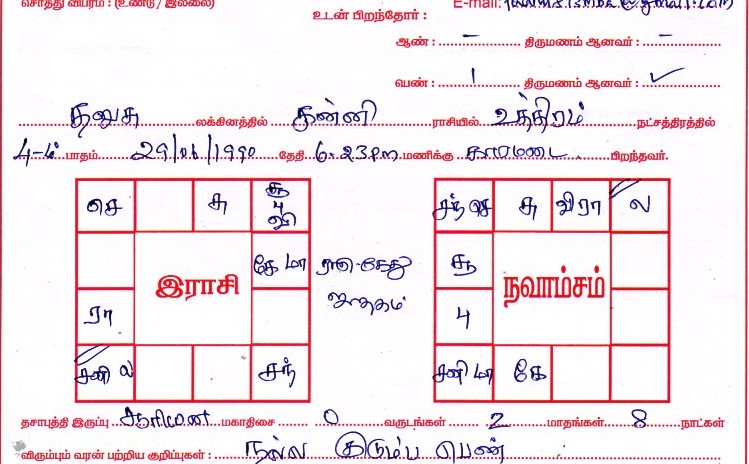 சொத்து விபரம் : (உண்டு / இல்லை)
E-mail:
உடன் பிறந்தோர் :
ஆண் : - திருமணம் ஆனவர் : -
பெண் : 1 திருமணம் ஆனவர் : ✓
தனுசு லக்கினத்தில் கன்னி ராசியில் உத்திரம் நட்சத்திரத்தில்
4-ம் பாதம் 29/06/1990 தேதி 6.23pm மணிக்கு காரமடை பிறந்தவர்.
செ சு சூ பு வி
கே மா
இராசி
ரா
சனி ல சந்
ராகு-கேது ஜாதகம்
சந் செ சு வி ரா ல
சூ
நவாம்சம்
பு
சனி மா கே
தசாபுத்தி இருப்பு சூரியன் மகாதிசை 0 வருடங்கள் 2 மாதங்கள் 8 நாட்கள்
விரும்பும் வரன் பற்றிய குறிப்புகள் : நல்ல குடும்ப பெண்